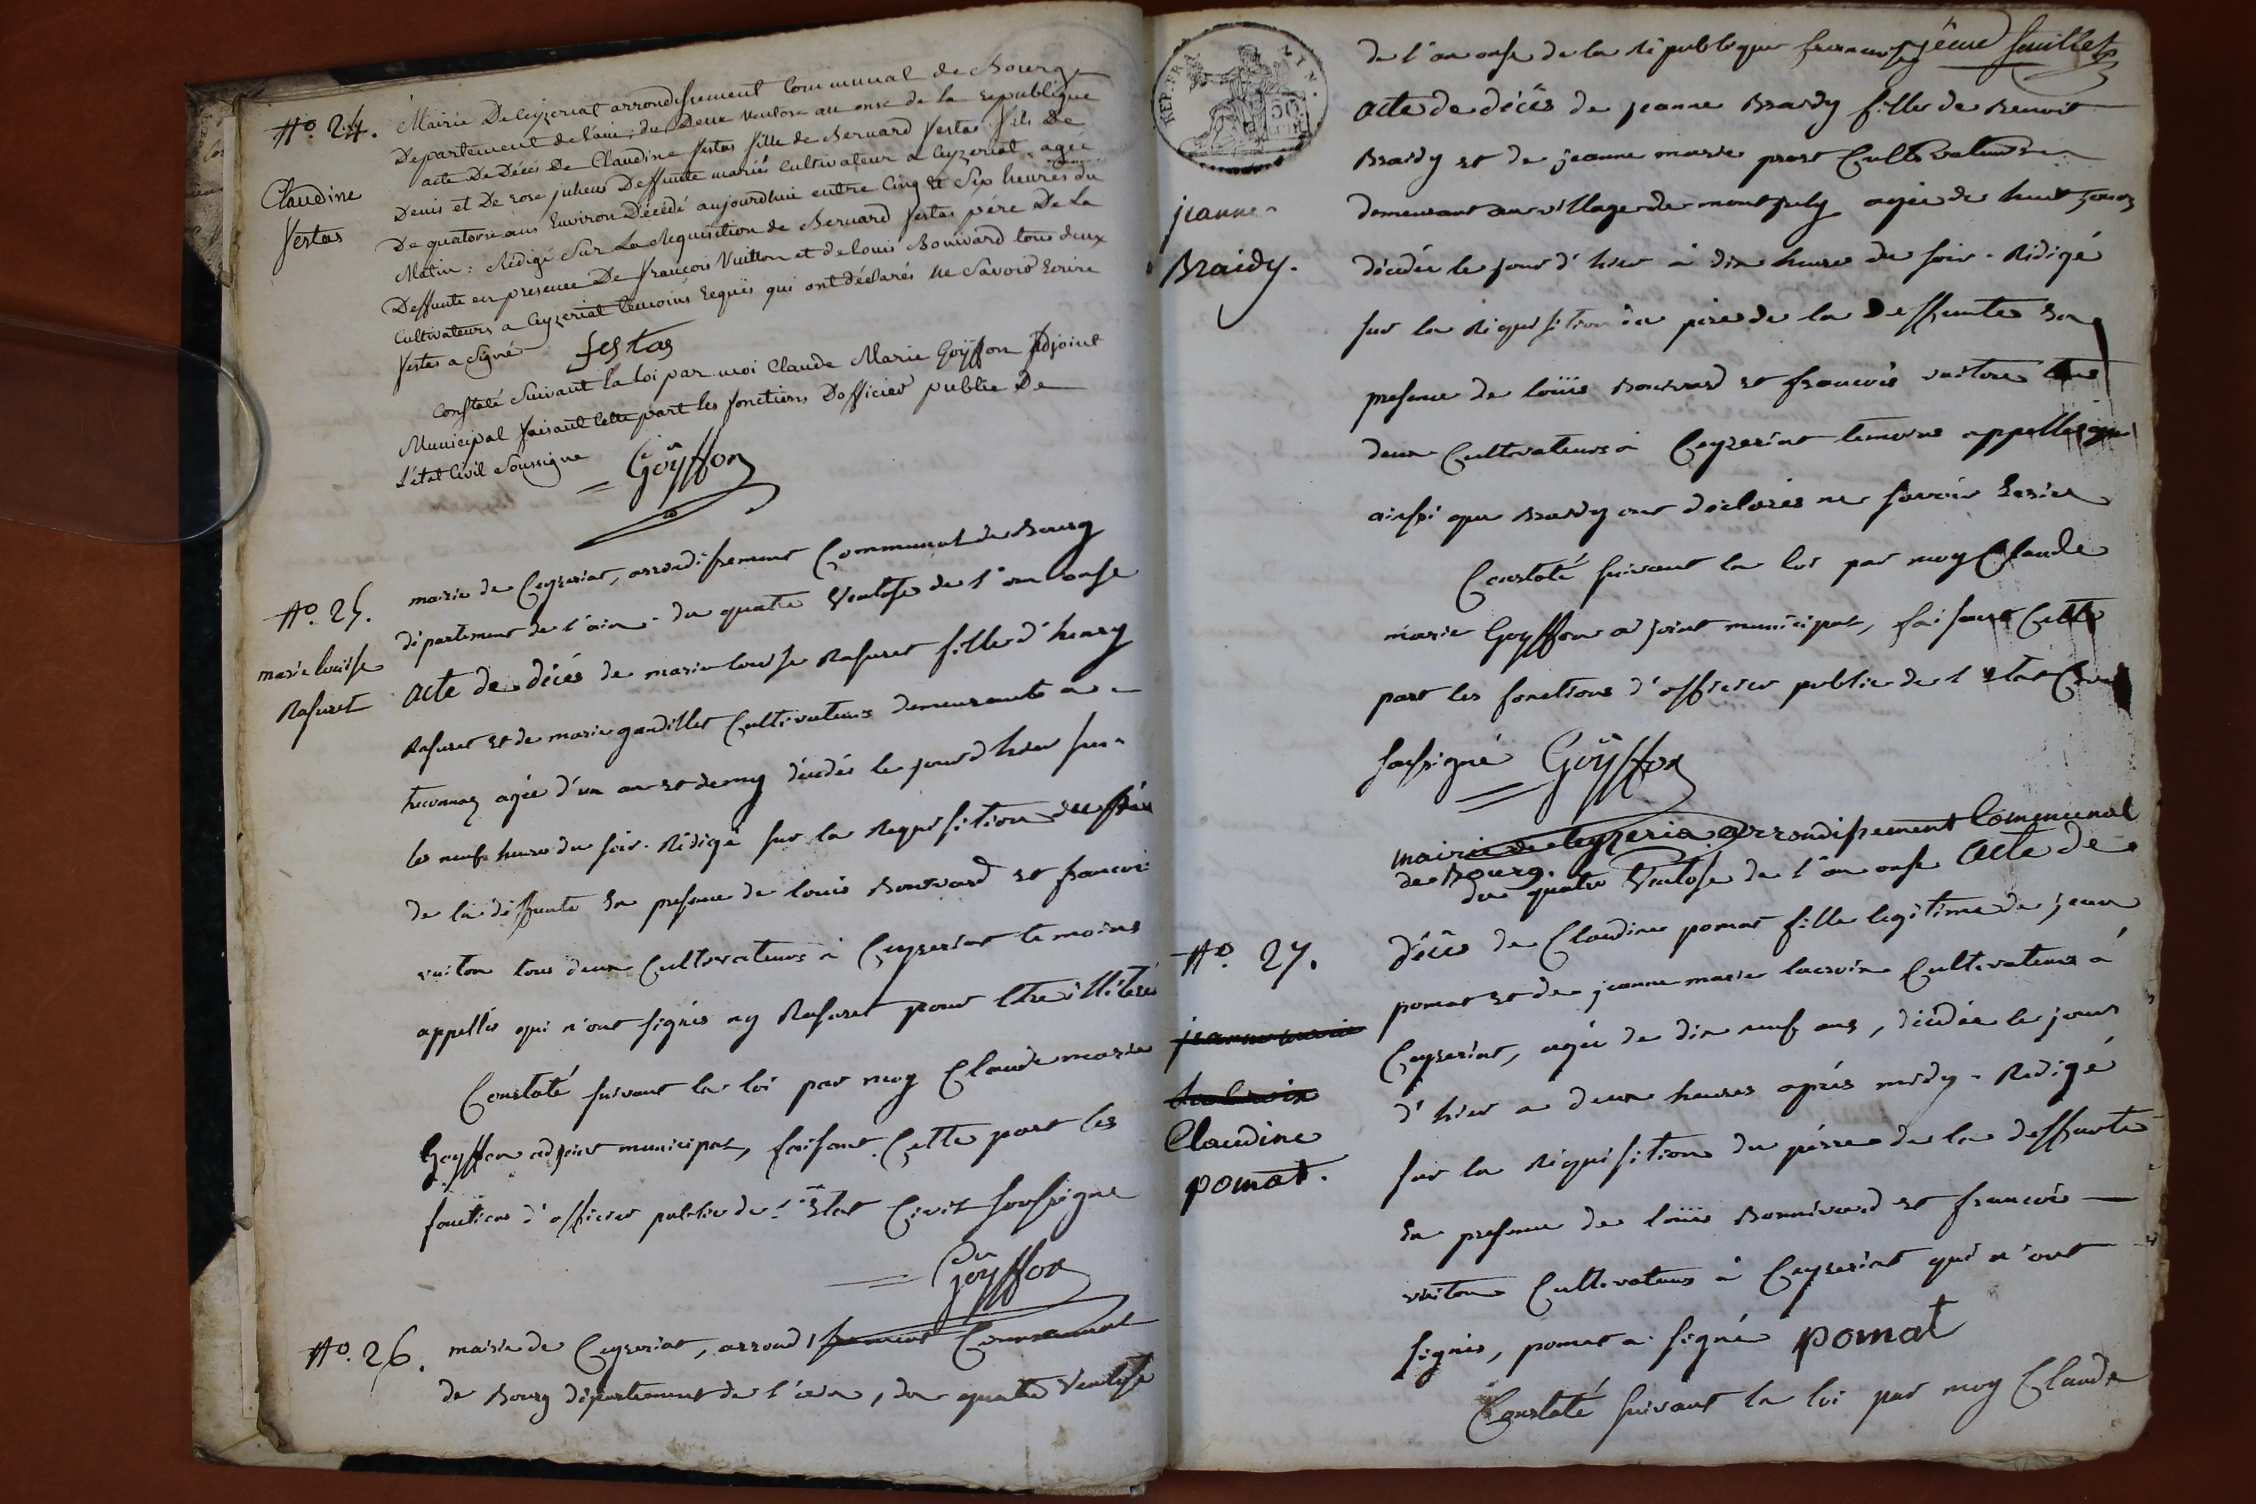 No. 24.
Claudine
festas
Mairie De Ceyzeriat arrondissement Communal de Bourg
Departement de l'ain, du Deux ventose an onze de la republique
acte De Décés De Claudine festas fille de Bernard festas fils De
Denis et De rose Deffunte mariés cultivateur a Ceyzeriat, agée
De quatorze ans Environ Décédé aujourdhui entre Cinq et Six heures du
Matin : Rédigé Sur La Requisition de Bernard festas pére De La
Deffunte en presence De françois Vuitton et de louis Bonivard tous deux
Cultivateurs a Ceyzeriat temoins requis qui ont déclarés ne Savoir Ecrire
festas a Signé festas
Constaté Suivant la loi par moi Claude Marie Goÿffon Adjoint
Municipal faisant cette part les fonctions D'officier public De
L'état Civil Soussigne
Goÿffon
No. 25.
marie louise
Rafuret
mairie de Ceyzeriat, arrondissement Communal de Bourg
département de l'ain - du quatre Ventose de l'an onse
acte de décés de marie louise Rafuret fille d'henry
Rafuret et de marie gaudillet Cultivateurs demeurants a
agée d'un an et demy décédée le jour d'hier sur
les neuf heures du soir. Rédigé sur la Requisition du pére
de la deffunte En presence de louis Bonivard et francois
vuiton tous deux Cultivateurs à Ceyzeriat temoins
appellés qui n'ont signés ny Rafuret pour Etre illiterés
Constaté suivant la loi par moy Claude marie
Goyffon adjoint municipal, faisant Cette part les
fonctions d'officier public de l'Etat Civil soussigne
Goÿffon
No. 26.
mairie de Ceyzeriat, arrondissement Communal
de Bourg département de l'ain, du quatre Ventose
REP. FRA
50
jeanne
Braidy.
de l'an onse de la République francaise
feuillet
acte de décês de jeanne Braidy fille de Benoit
Braidy et de jeanne marie Cultivateurs
demeurant au village de montjuly agée de huit jours
décédée le jour d'hier à dix heures du soir - Rédigé
sur la Requisition du pére de la Deffunte En
presence de loüis Bonivard et francois vuiton tous
deux Cultivateurs à Ceyzeriat temoins appellés qui
ainsi que Braidy ont déclarés ne savoir Ecrire
Constaté suivant la loi par moy Claude
marie Goyffon adjoint municipal, faisant Cette
part les fonctions d'officier public de l'Etat Civil
soussigné Goÿffon
No. 27.
Claudine
pomat.
mairie de Ceyzeria arrondissement Communal
de Bourg.
du quatre Ventose de l'an onse acte de
décês de Claudine pomat fille legitime de jean
pomat et de jeanne marie lacroix Cultivateurs à
Ceyzeriat, agée de dix neuf ans, décédée le jour
d'hier a deux heures aprés midy - Rédigé
sur la Réquisition du pére de la deffunte
En presence de loüis Bonnivard et francois
vuiton Cultivateurs à Ceyzeriat qui n'ont
signés, pomat a signé pomat
Constaté suivant la loi par moy Claude